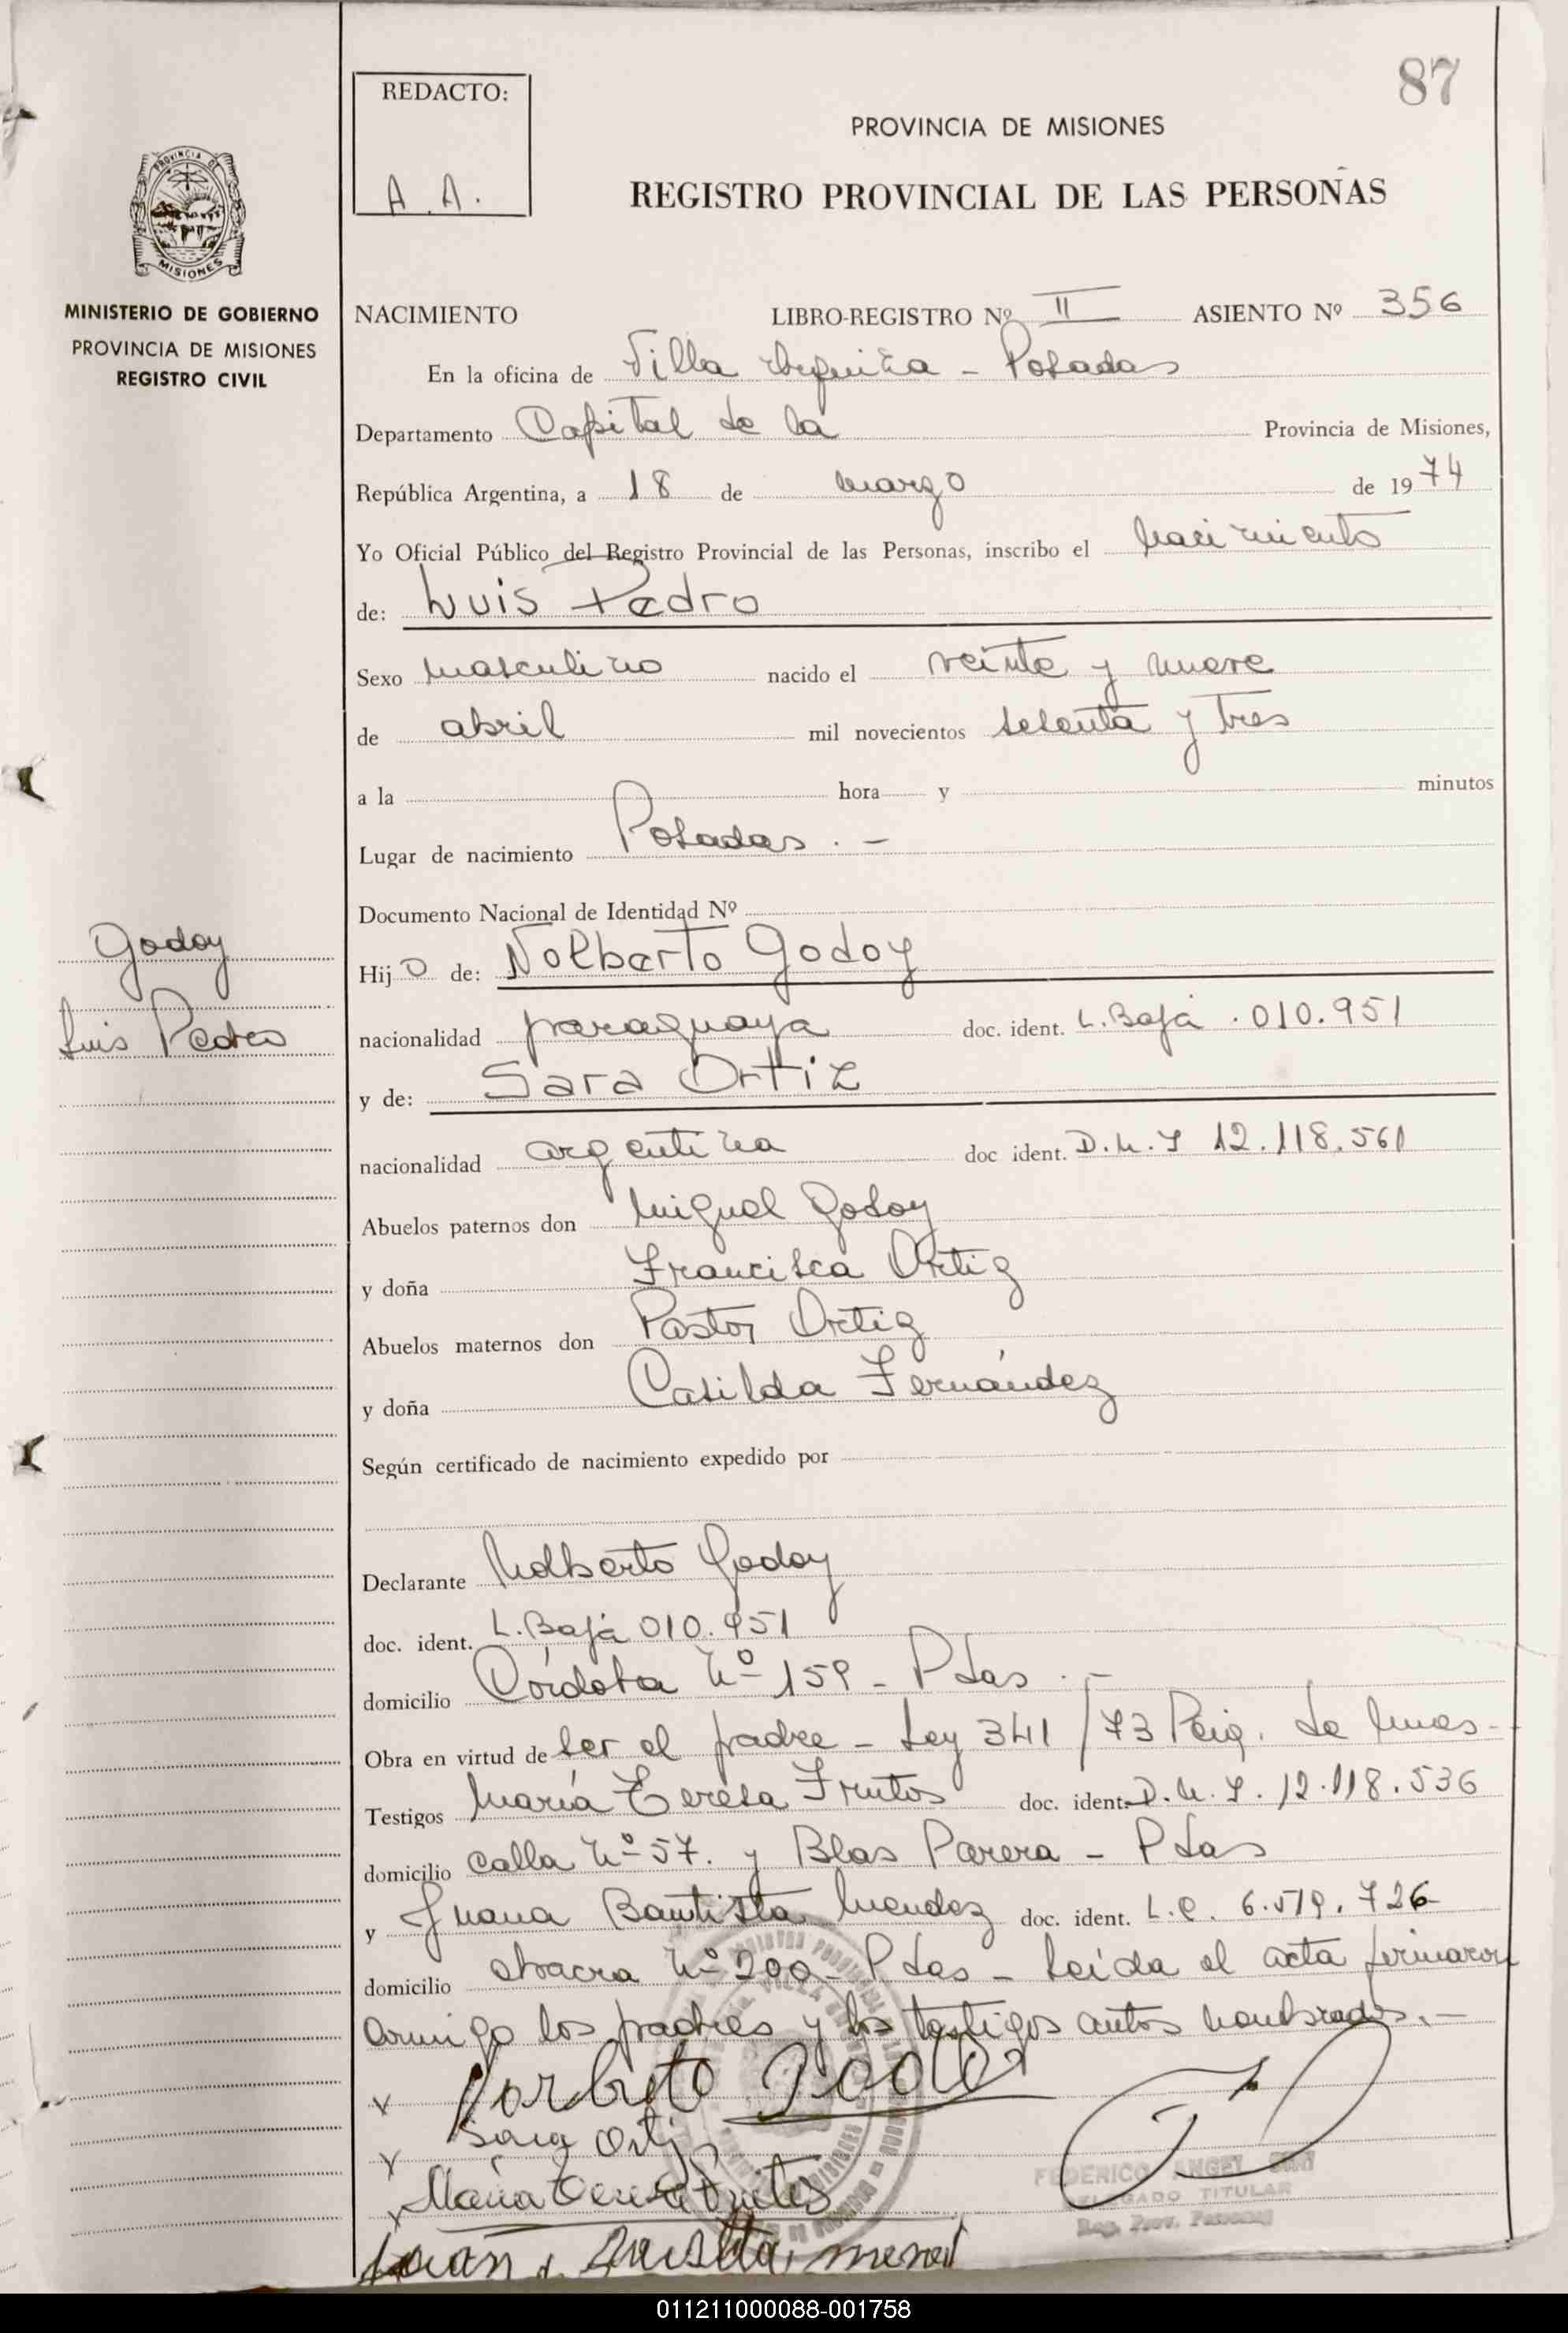 87
REDACTO:
A.A.
PROVINCIA DE MISIONES
REGISTRO PROVINCIAL DE LAS PERSONAS
PROVINCIA DE
MISIONES
MINISTERIO DE GOBIERNO
PROVINCIA DE MISIONES
REGISTRO CIVIL
NACIMIENTO LIBRO-REGISTRO Nº II ASIENTO Nº 356
En la oficina de Villa Urquiza - Posadas
Departamento Capital de la Provincia de Misiones,
República Argentina, a 18 de marzo de 1974
Yo Oficial Público del Registro Provincial de las Personas, inscribo el nacimiento
de: Luis Pedro
Sexo masculino nacido el veinte y nueve
de abril mil novecientos setenta y tres
a la hora y minutos
Lugar de nacimiento Posadas . -
Documento Nacional de Identidad Nº
Godoy
Luis Pedro
Hijo de: Nolberto Godoy
nacionalidad paraguaya doc. ident. L. Baja . 010.951
y de: Sara Ortiz
nacionalidad argentina doc ident. D.N.I 12.118.561
Abuelos paternos don Miguel Godoy
y doña Francisca Ortiz
Abuelos maternos don Pastor Ortiz
y doña Casilda Fernández
Según certificado de nacimiento expedido por
Declarante Nolberto Godoy
doc. ident. L. Baja 010.951
domicilio Córdoba Nº 159 - Pdas . -
Obra en virtud de ser el padre - Ley 341/73 de
Testigos María Teresa Frutos doc. ident. D.N.I. 12.118.536
domicilio calla Nº 57. y Blas Parera - Pdas
y Juana Bautista Mendez doc. ident. L.C. 6.519.726
domicilio chacra Nº 200 - Pdas - Leída el acta firmaron
conmigo los padres y los testigos antes nombrados. -
x Norberto Godoy
x Sara Ortiz
x María Teresa Frutos
FEDERICO ANGEL
DELEGADO TITULAR
Reg. Prov. Personas
011211000088-001758